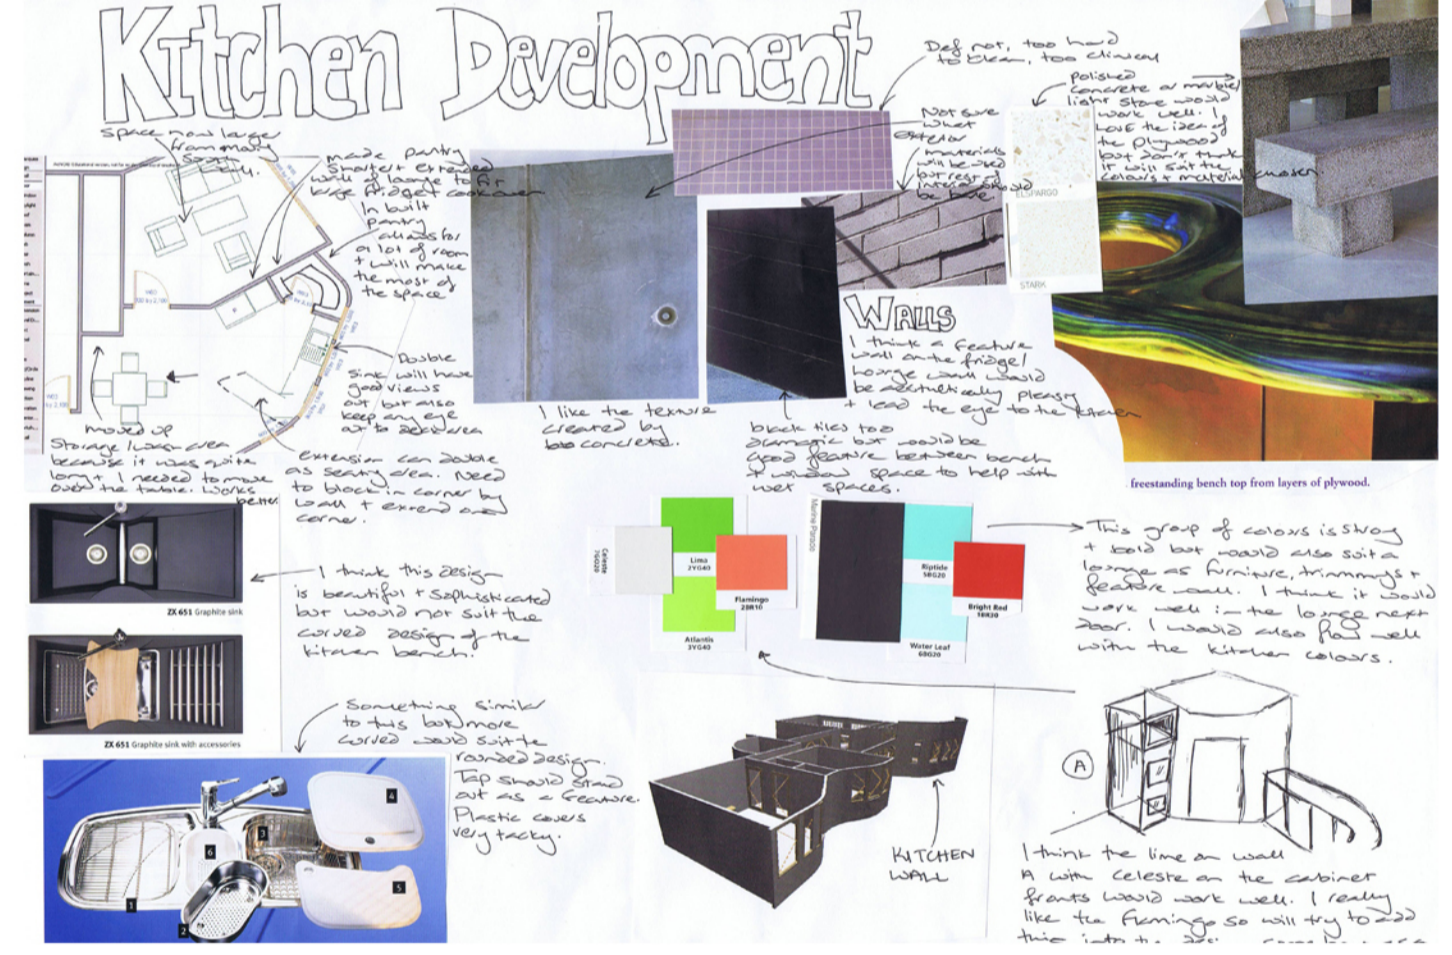 Kitchen Development
Space now larger
from moving
wall.
made pantry
smaller & extended
wall of lounge to fit
large fridge & cook oven
In built
pantry
allows for
a lot of room
+ will make
the most of
the space
Double
sink will have
good views
out but also
keep any eye
out to deck area
moved up
storage/wash area
because it was quite
long + I needed to move
over the table. Works
better.
extension can double
as seating area. Need
to block in corner by
wall + extend
corner.
Def not, too hard
to clean, too clinical
Not sure
what
exterior
materials
will be used
but rest of
interior should
be
polished
concrete or marble/
light stone would
work well. I
LOVE the idea of
the plywood
but don't think
it will suit the
colours + materials chosen
ELSPARGO
STARK
I like the texture
created by
concrete.
WALLS
I think a feature
wall on the fridge/
lounge wall would
be aesthetically pleasing
+ lead the eye to the kitchen
black tiles too
dramatic but would be
good feature between bench
+ window space to help with
wet spaces.
freestanding bench top from layers of plywood.
ZX 651 Graphite sink
ZX 651 Graphite sink with accessories
I think this design
is beautiful + sophisticated
but would not suit the
curved design of the
kitchen bench.
Something similar
to this but more
curved would suit the
rounded design.
Tap should stand
out as a feature.
Plastic covers
very tacky.
1
2
3
4
5
6
Celeste
7GG20
Lima
2YG40
Flamingo
2BR10
Atlantis
3YG40
Marina Parade
Riptide
5BG20
Bright Red
1BR20
Water Leaf
6BG20
This group of colours is strong
+ bold but would also suit a
lounge as furniture, trimmings +
feature wall. I think it would
work well in the lounge next
door. I would also flow well
with the kitchen colours.
KITCHEN
WALL
A
I think the lime on wall
A with celeste on the cabinet
fronts would work well. I really
like the flamingo so will try to add
this into the